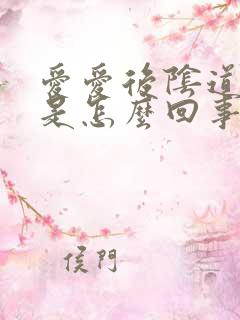 愛愛後陰道
是怎麼回事
侯門